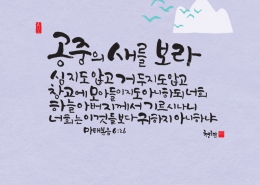 공중의 새를 보라
심지도 않고 거두지도 않고
창고에 모아들이지도 아니하되 너희
하늘 아버지께서 기르시나니
너희는 이것들보다 귀하지 아니하냐
마태복음 6:26